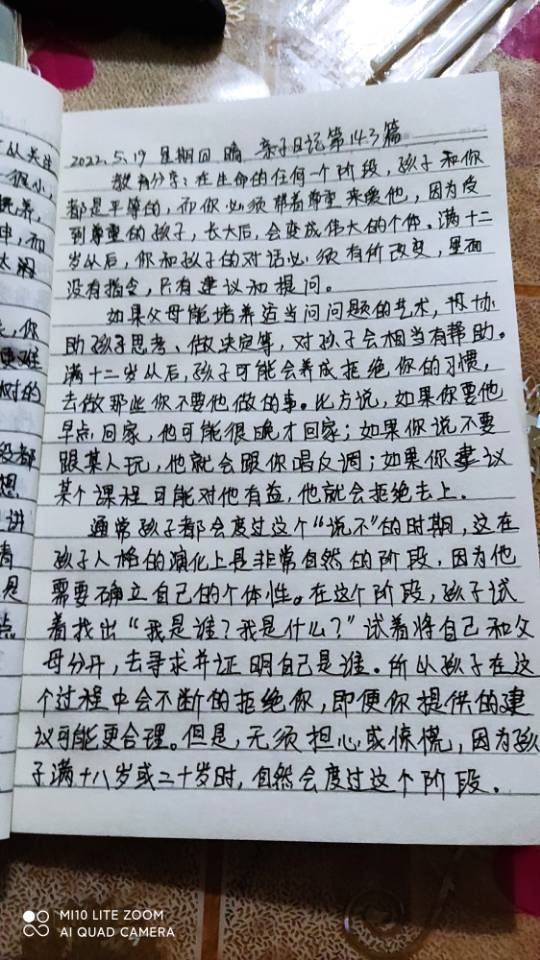 从关注
很小,
抚养,
申,而
太溺
你
更难
树的
段都
想
讲
着
是
点
2022.5.19 星期四 晴 亲子日记第143篇
教育分享:在生命的任何一个阶段,孩子和你
都是平等的,而你必须带着尊重来爱他,因为受
到尊重的孩子,长大后,会变成伟大的个体。满十二
岁以后,你和孩子的对话必须有所改变,里面
没有指令,只有建议和提问。
如果父母能培养适当问问题的艺术,担协
助孩子思考、做决定等,对孩子会相当有帮助。
满十二岁以后,孩子可能会养成拒绝你的习惯,
去做那些你不要他做的事。比方说,如果你要他
早点回家,他可能很晚才回家;如果你说不要
跟某人玩,他就会跟你唱反调;如果你建议
某个课程可能对他有益,他就会拒绝去上。
通常孩子都会度过这个“说不”的时期,这在
孩子人格的演化上是非常自然的阶段,因为他
需要确立自己的个体性。在这个阶段,孩子试
着找出“我是谁?我是什么?”试着将自己和父
母分开,去寻求并证明自己是谁。所以孩子在这
个过程中会不断的拒绝你,即便你提供的建
议可能更合理。但是,无须担心或惊慌,因为孩
子满十八岁或二十岁时,自然会度过这个阶段。
MI10 LITE ZOOM
AI QUAD CAMERA